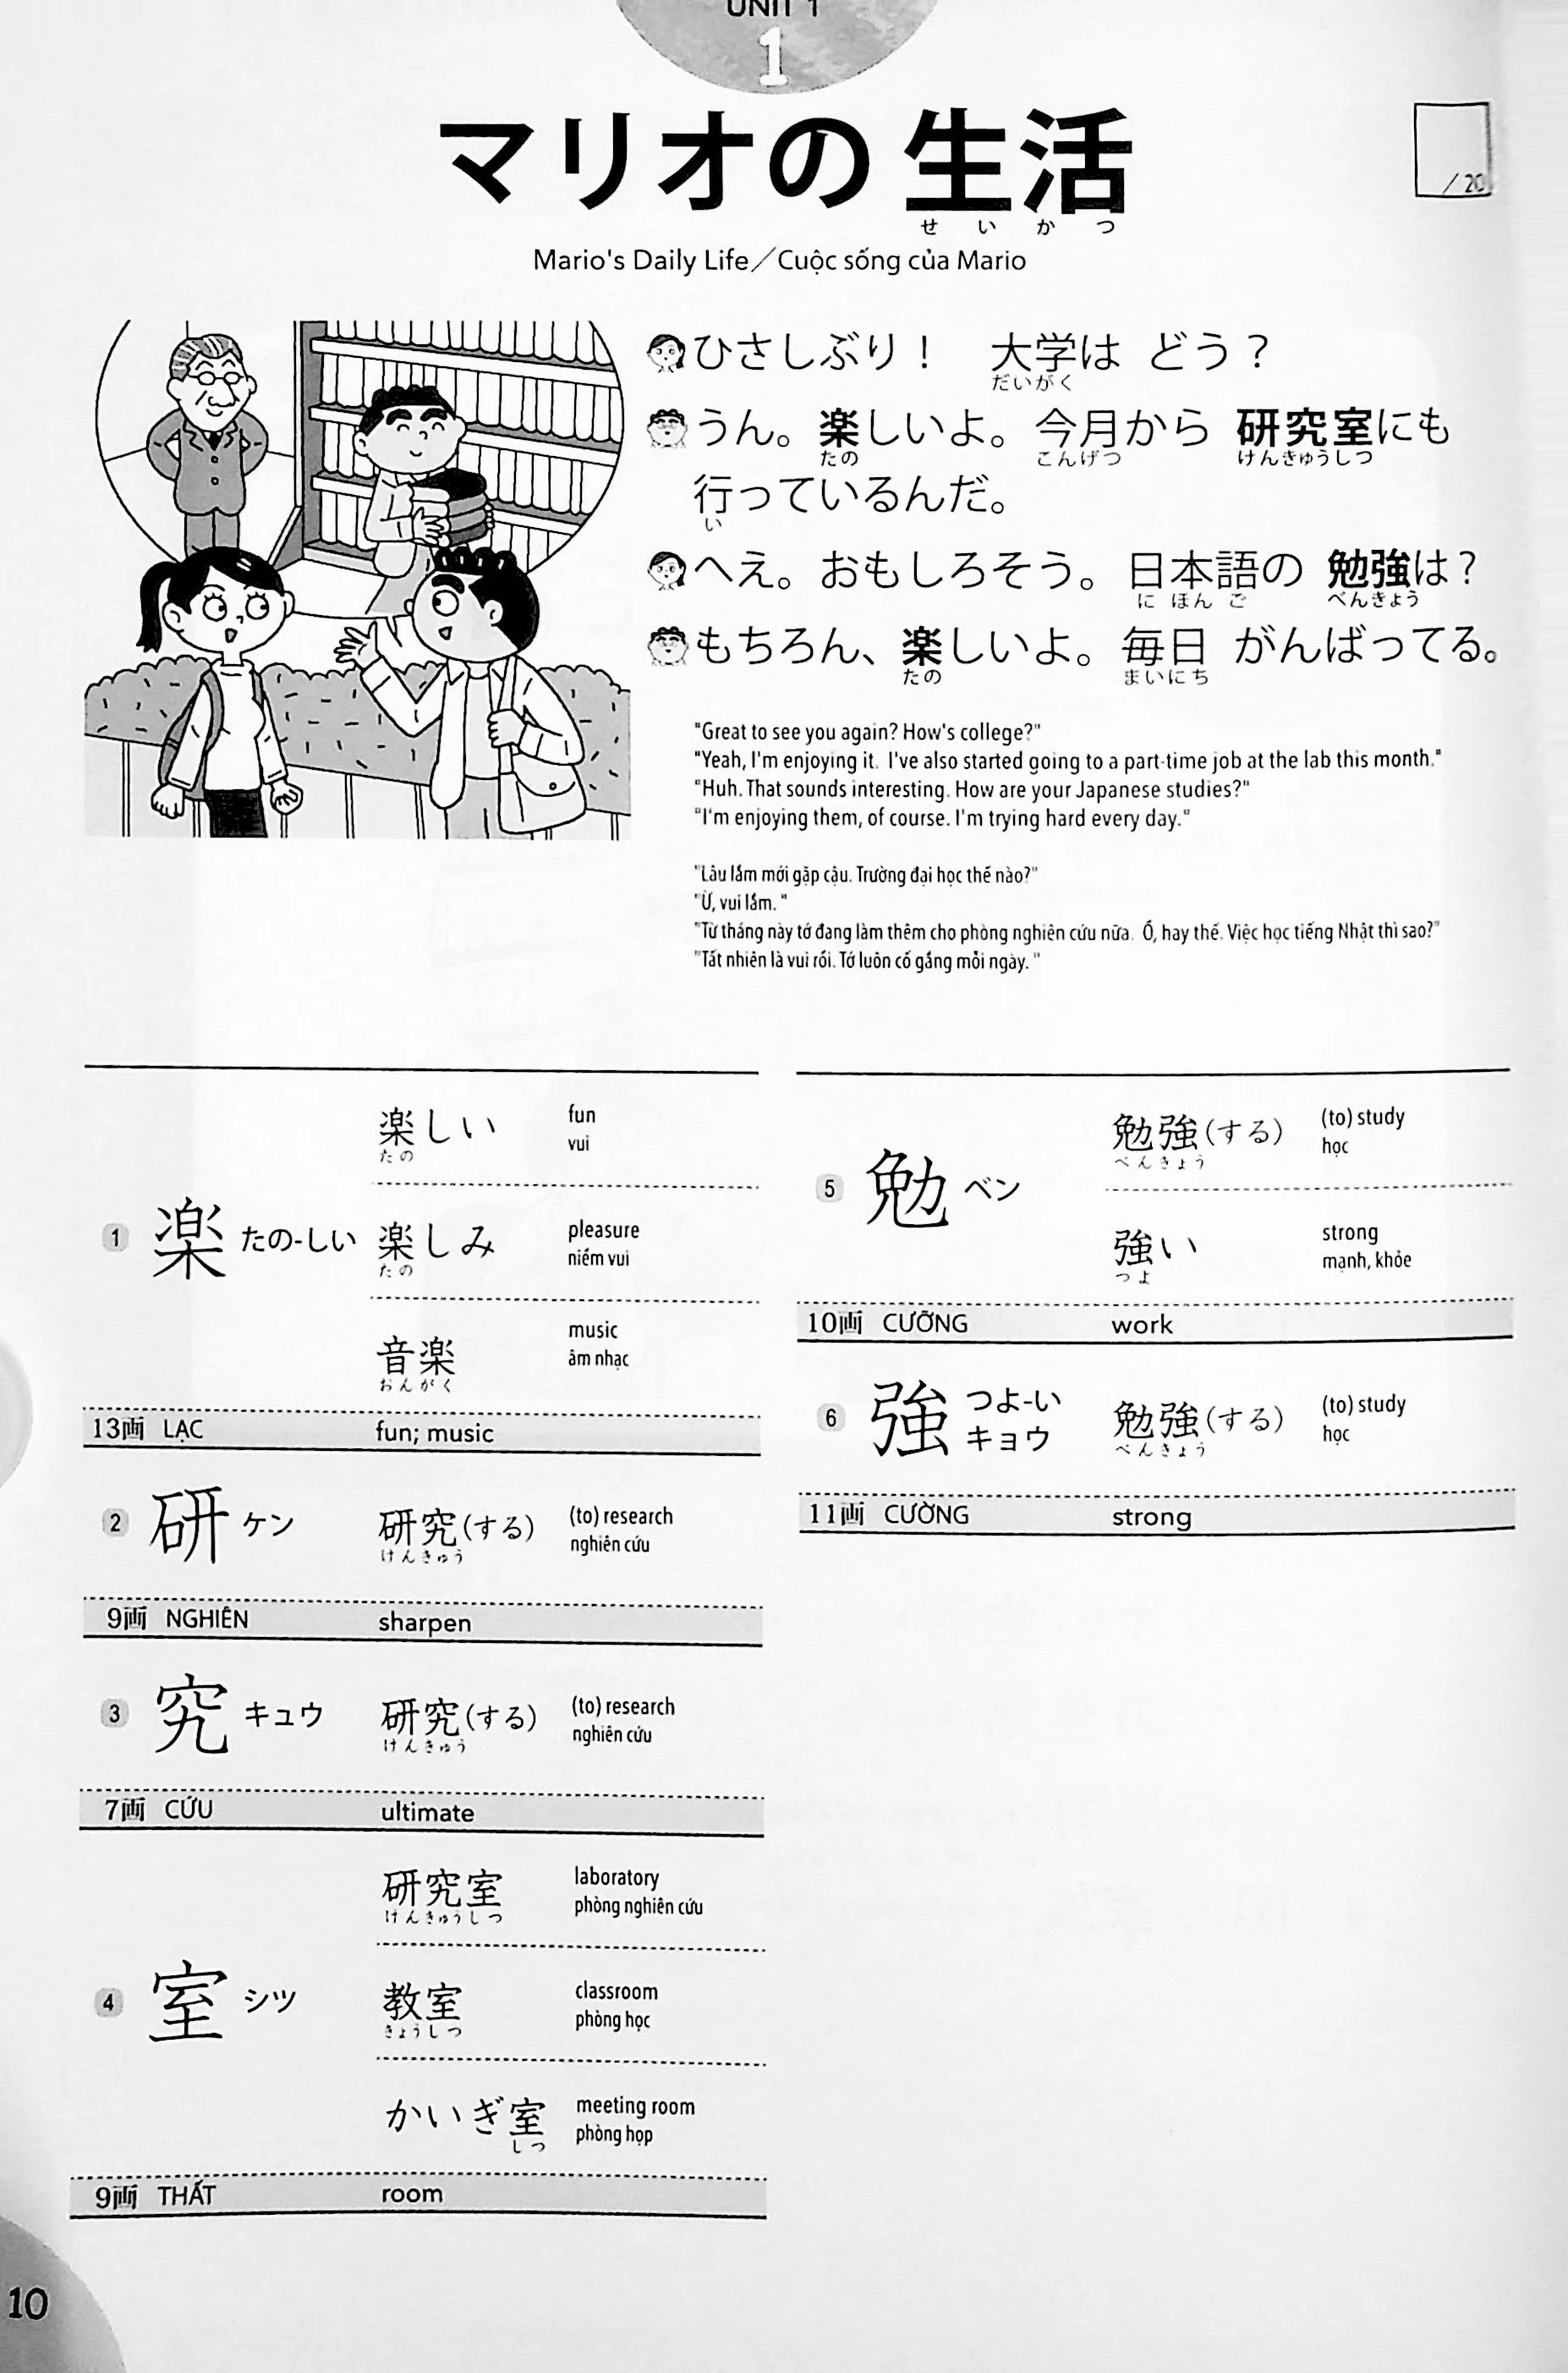 UNIT 1
1
マリオの 生活
せいかつ
/20
Mario's Daily Life／Cuộc sống của Mario
ひさしぶり！ 大学は どう？
だいがく
うん。楽しいよ。今月から 研究室にも
たの こんげつ けんきゅうしつ
行っているんだ。
い
へえ。おもしろそう。日本語の 勉強は？
に ほん ご べんきょう
もちろん、楽しいよ。毎日 がんばってる。
たの まいにち
"Great to see you again? How's college?"
"Yeah, I'm enjoying it. I've also started going to a part-time job at the lab this month."
"Huh. That sounds interesting. How are your Japanese studies?"
"I'm enjoying them, of course. I'm trying hard every day."
"Lâu lắm mới gặp cậu. Trường đại học thế nào?"
"Ừ, vui lắm. "
"Từ tháng này tớ đang làm thêm cho phòng nghiên cứu nữa. Ồ, hay thế. Việc học tiếng Nhật thì sao?"
"Tất nhiên là vui rồi. Tớ luôn cố gắng mỗi ngày. "
楽しい fun
たの vui
1 楽 たの-しい 楽しみ pleasure
たの niềm vui
音楽 music
おんがく âm nhạc
13画 LẠC fun; music
2 研 ケン 研究(する) (to) research
けんきゅう nghiên cứu
9画 NGHIÊN sharpen
3 究 キュウ 研究(する) (to) research
けんきゅう nghiên cứu
7画 CỨU ultimate
研究室 laboratory
けんきゅうしつ phòng nghiên cứu
4 室 シツ 教室 classroom
きょうしつ phòng học
かいぎ室 meeting room
しつ phòng họp
9画 THẤT room
5 勉 ベン 勉強(する) (to) study
べんきょう học
強い strong
つよ mạnh, khỏe
10画 CƯỠNG work
6 強 つよ-い キョウ 勉強(する) (to) study
べんきょう học
11画 CƯỜNG strong
10